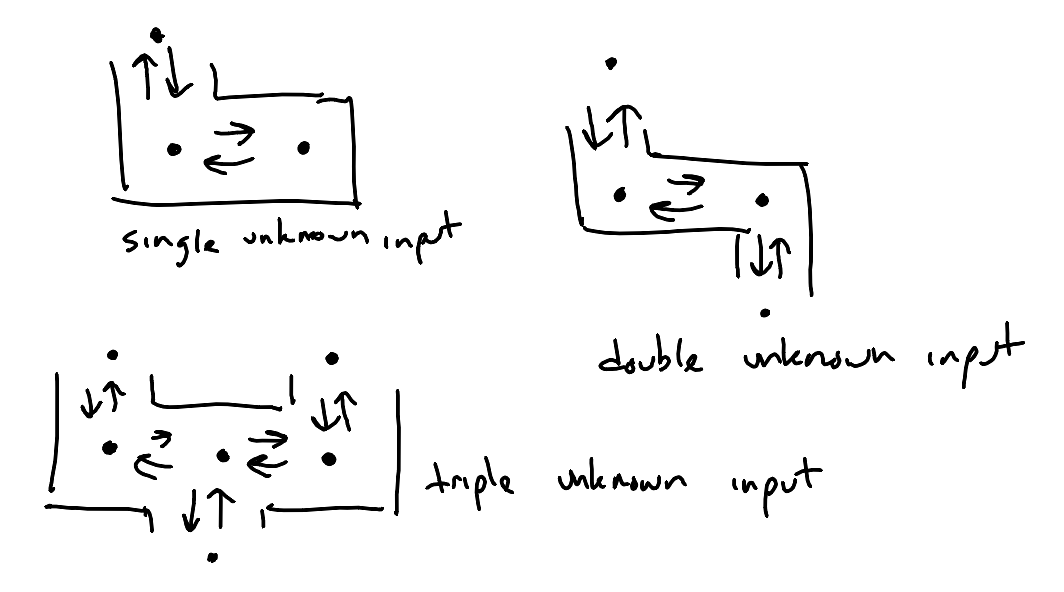 single unknown input
double unknown input
triple unknown input